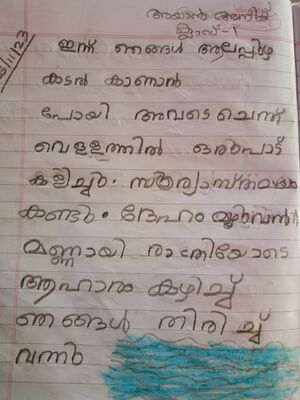 അയാൻ അനീഷ്
ക്ലാസ് - 1
15/11/23
ഇന്ന് ഞങ്ങൾ ആലപ്പുഴ
കടൽ കാണാൻ
പോയി അവടെ ചെന്ന്
വെള്ളത്തിൽ ഒരുപാട്
കളിച്ചു. സൂര്യാസ്തമയം
കണ്ടു. ദേഹം മുഴുവൻ
മണ്ണായി രാത്രിയോടെ
ആഹാരം കഴിച്ച്
ഞങ്ങൾ തിരിച്ച്
വന്നു